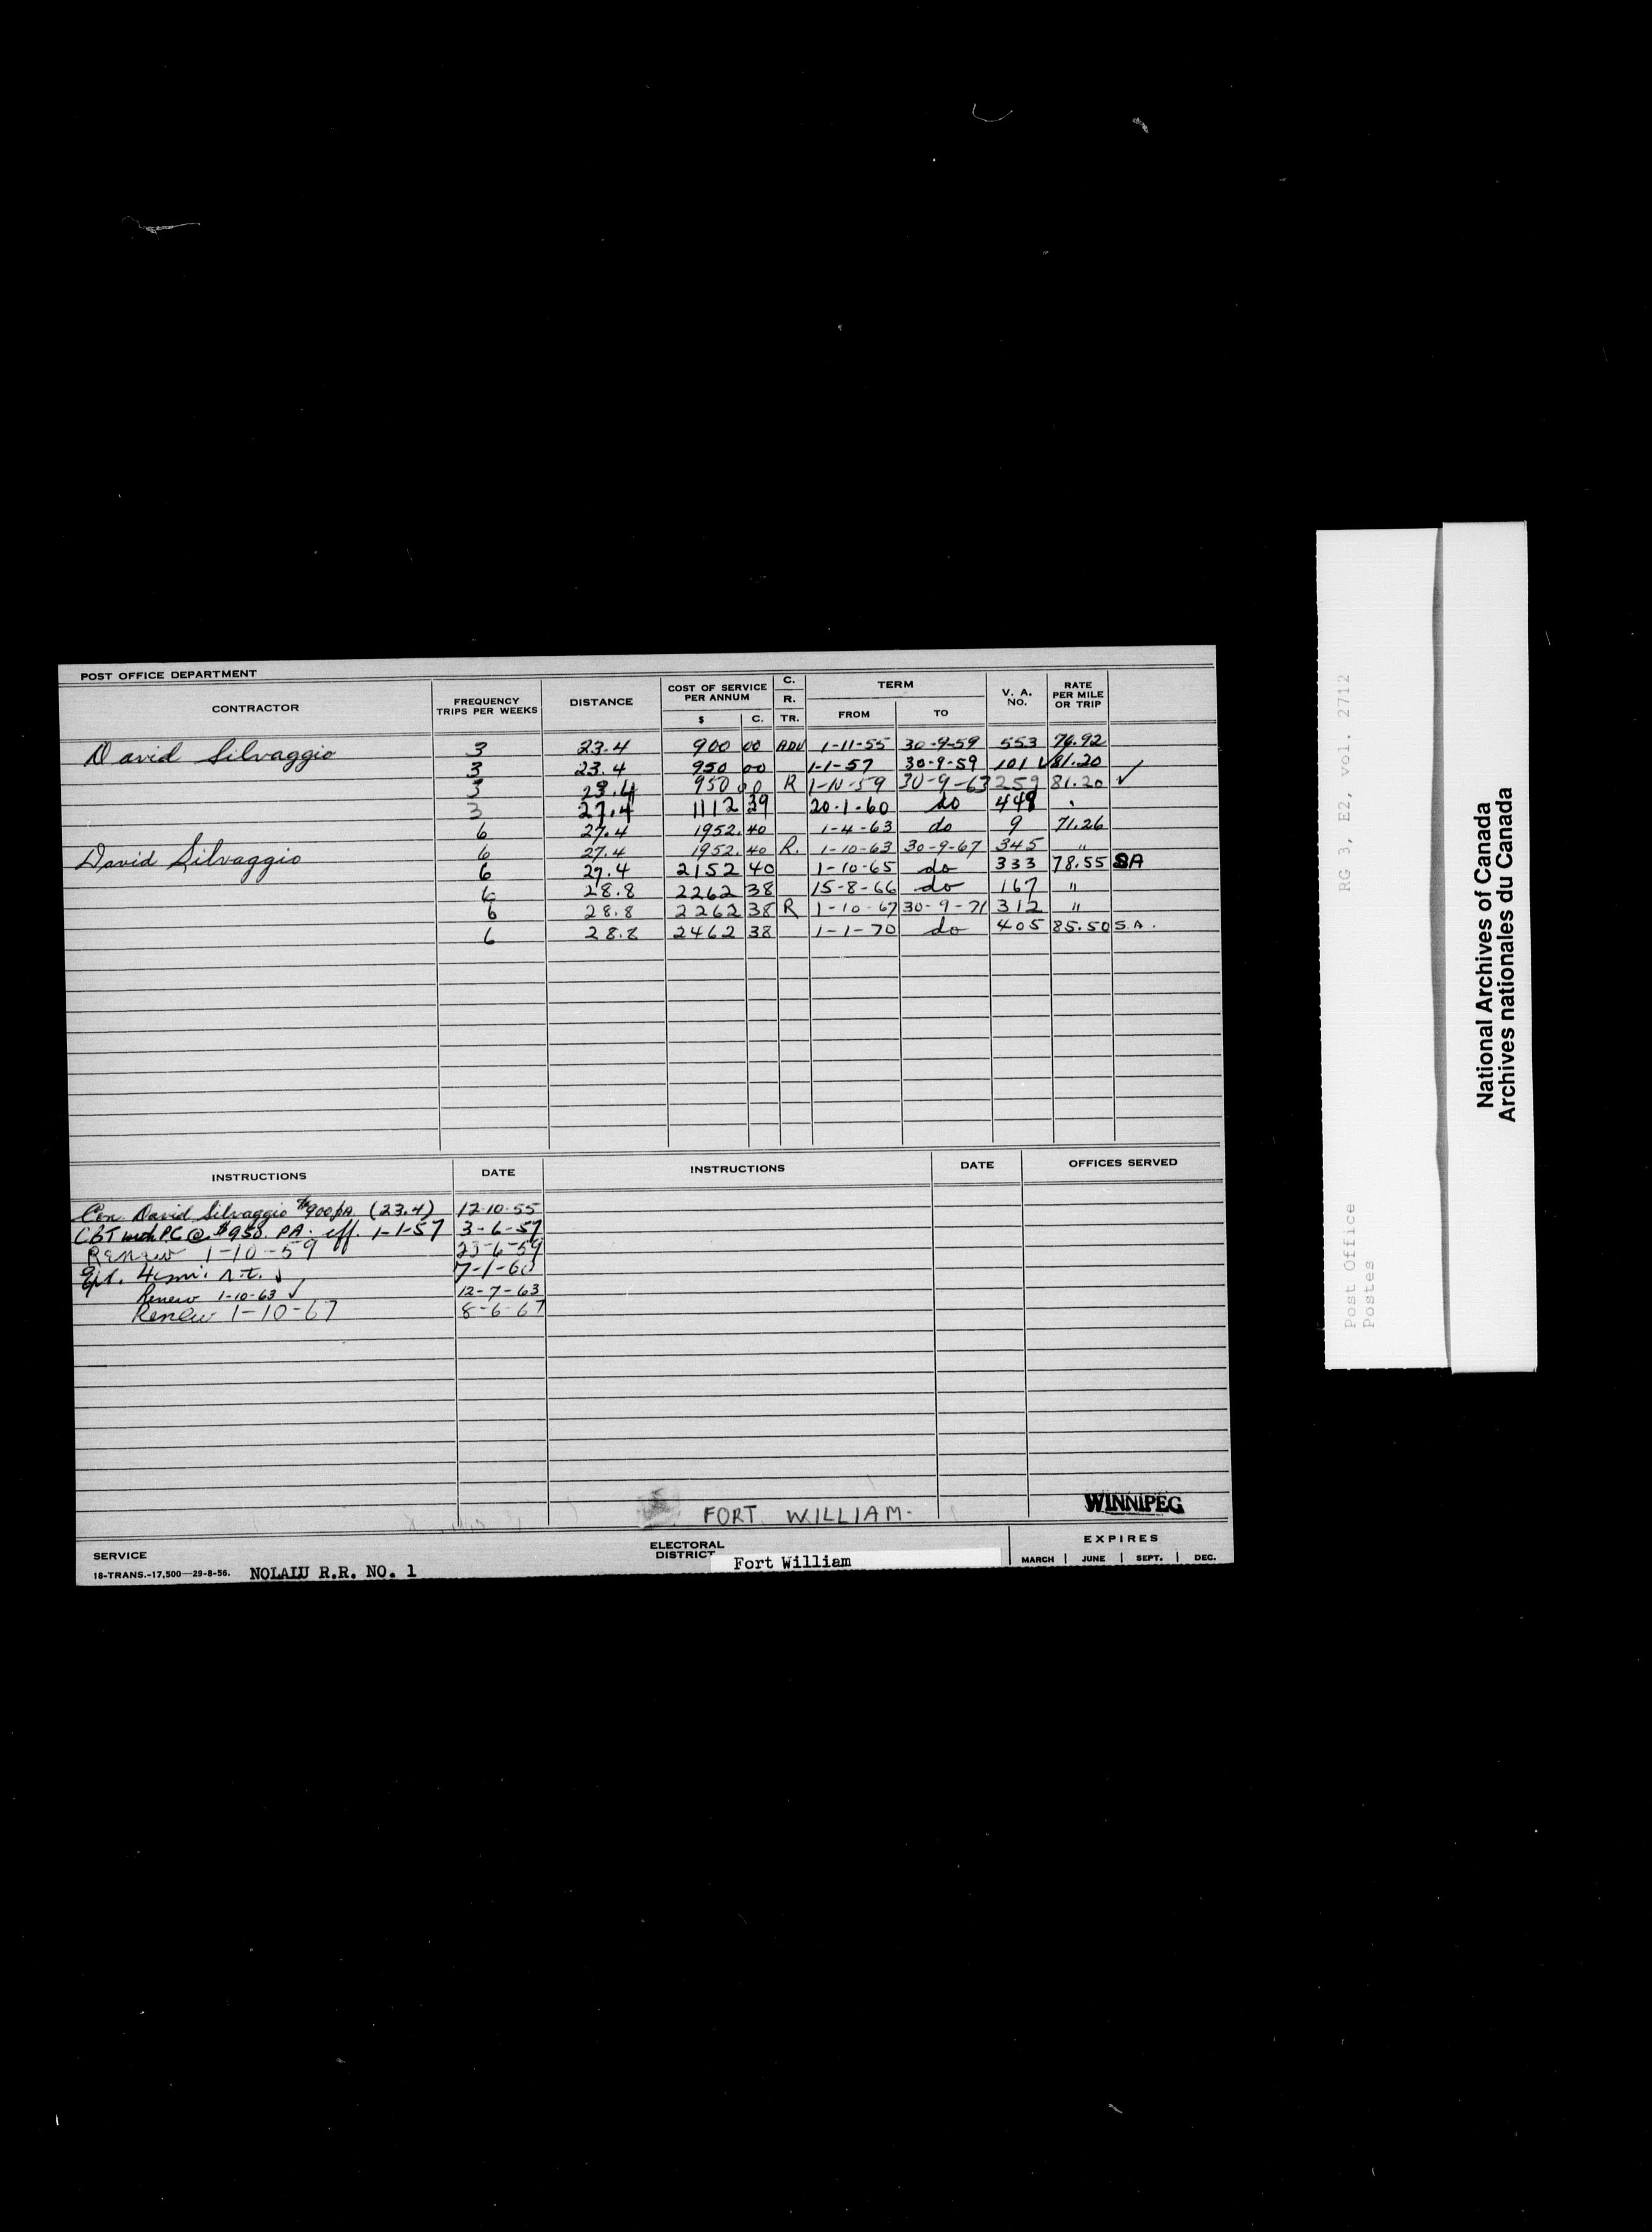 POST OFFICE DEPARTMENT
CONTRACTOR FREQUENCY TRIPS PER WEEKS DISTANCE COST OF SERVICE PER ANNUM $ C. C. R. TR. TERM FROM TO V. A. NO. RATE PER MILE OR TRIP
David Silvaggio 3 23.4 900 00 ADV 1-11-55 30-9-59 553 76.92
3 23.4 950 00 1-1-57 30-9-59 101 ✓ 81.20
3 23.4 950 00 R 1-10-59 30-9-63 259 81.20 ✓
3 27.4 1112 39 20-1-60 do 448 "
6 27.4 1952.40 1-4-63 do 9 71.26
David Silvaggio 6 27.4 1952.40 R. 1-10-63 30-9-67 345 "
6 27.4 2152 40 1-10-65 do 333 78.55 SA
6 28.8 2262 38 15-8-66 do 167 "
6 28.8 2262 38 R 1-10-67 30-9-71 312 "
6 28.8 2462 38 1-1-70 do 405 85.50 S.A.
INSTRUCTIONS DATE INSTRUCTIONS DATE OFFICES SERVED
Con. David Silvaggio $900 pa (23.4) 12-10-55
CBT P.C. @ $950. PA. eff. 1-1-57 3-6-57
Renew 1-10-59 23-6-59
4 mi. r.t. ✓ 7-1-60
Renew 1-10-63 ✓ 12-7-63
Renew 1-10-67 8-6-67
FORT WILLIAM.
WINNIPEG
SERVICE
18-TRANS.-17,500—29-8-56. NOLALU R.R. NO. 1
ELECTORAL DISTRICT Fort William
EXPIRES
MARCH | JUNE | SEPT. | DEC.
Post Office
Postes
RG 3, E2, vol. 2712
National Archives of Canada
Archives nationales du Canada